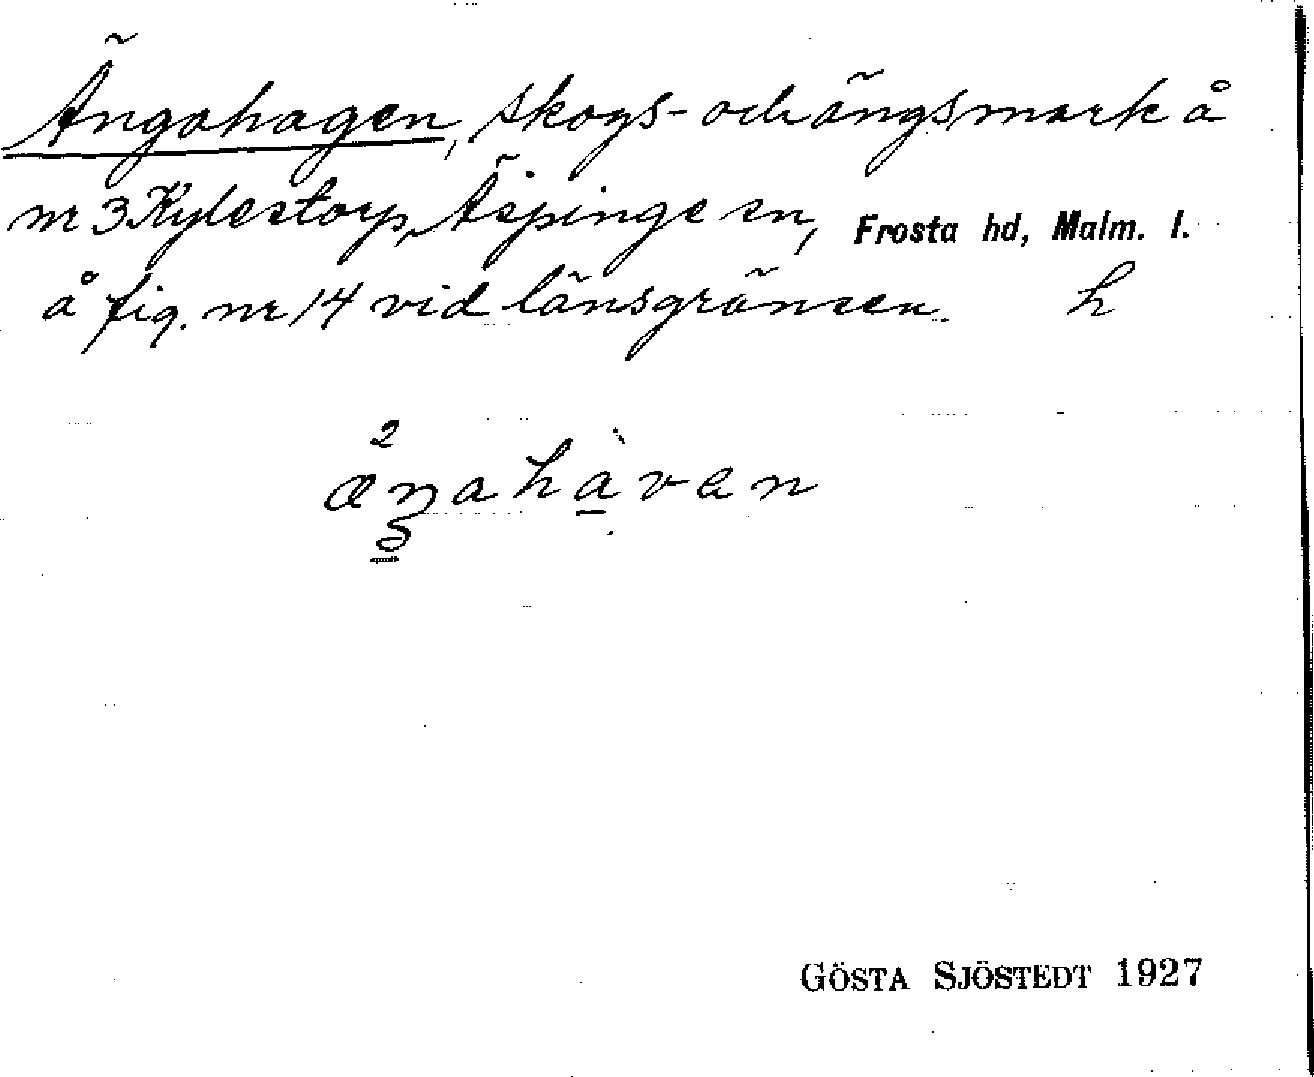 Ängahagen, skogs- och ängsmark å
nr 3 Kylestorp, Äspinge sn, Frosta hd, Malm. l.
å fig. nr 14 vid länsgränsen. h
2
æŋahàvan
GÖSTA SJÖSTEDT 1927